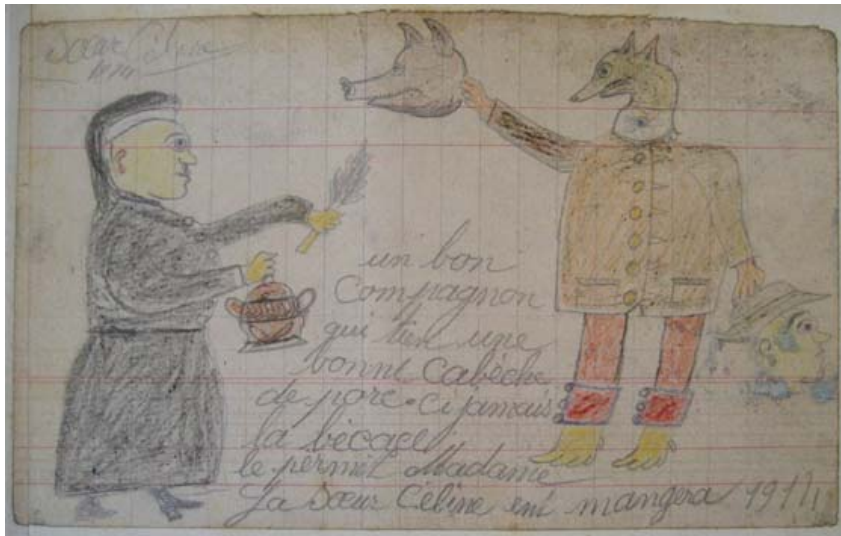 Sœur Céline
un bon
Compagnon
qui tien une
bonne Cabèche
de porc. Ci jamais
la bécace
le permit Madame
La Sœur Céline ent mangera